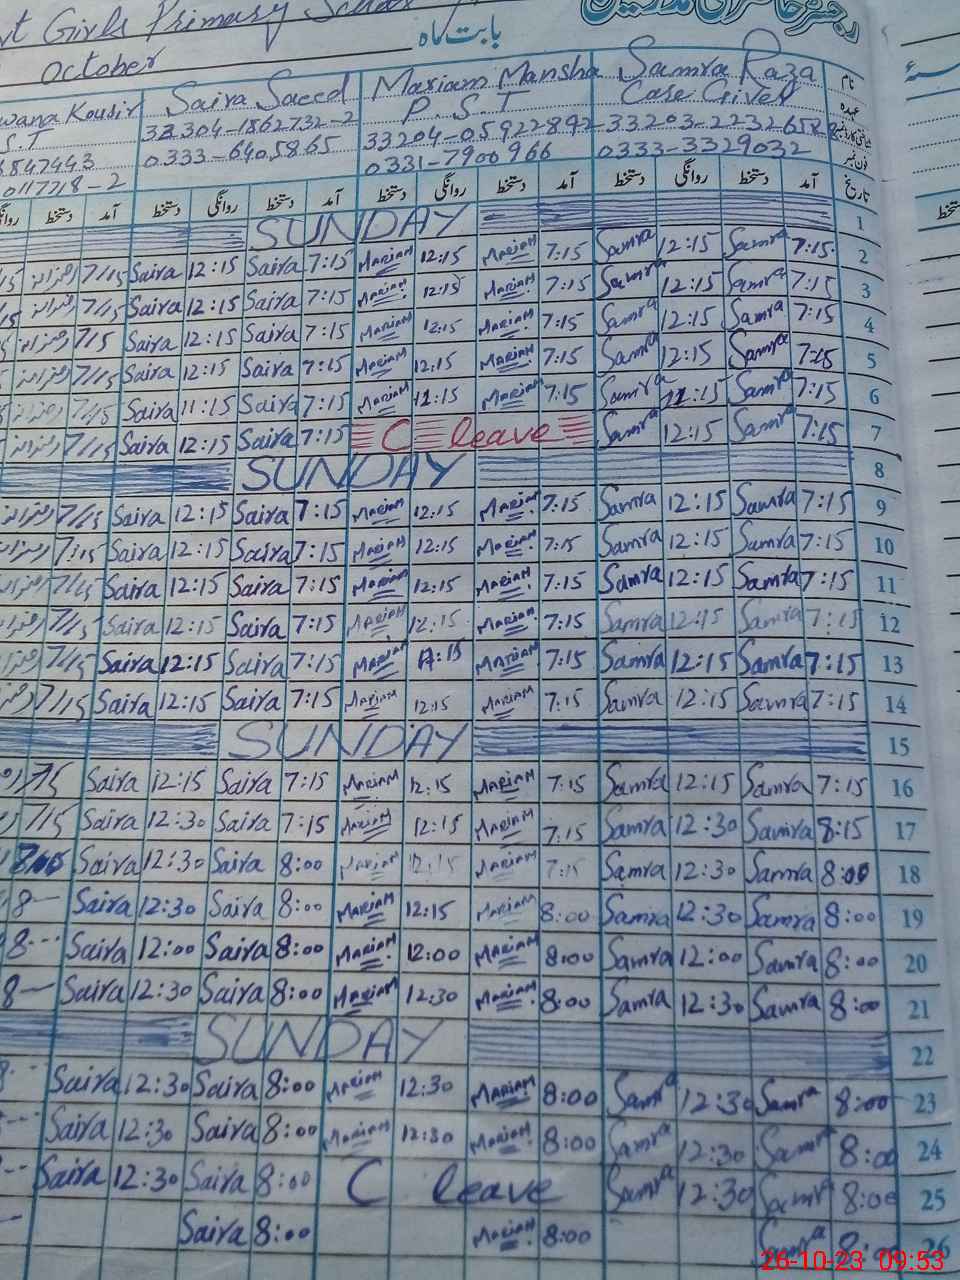 Girls Primary School
رجسٹر حاضری مدرسین
October بابت ماہ
Kousir Saira Saeed Mariam Mansha Samra Raza نام
S.T P.S.T Care Giver عہدہ
33304-1862732-2 33204-05922892 33203-2232658
6847443 0333-6405865 0331-7900966 0333-3329032 فون نمبر
0117718-2
دستخط آمد دستخط روانگی دستخط آمد دستخط روانگی دستخط آمد دستخط روانگی دستخط آمد تاریخ
SUNDAY 1
7/15 Saira 12:15 Saira 7:15 MARIAM 12:15 MARIAM 7:15 Samra 12:15 Samra 7:15 2
7/15 Saira 12:15 Saira 7:15 MARIAM 12:15 MARIAM 7:15 Samra 12:15 Samra 7:15 3
7/15 Saira 12:15 Saira 7:15 MARIAM 12:15 MARIAM 7:15 Samra 12:15 Samra 7:15 4
7/15 Saira 12:15 Saira 7:15 MARIAM 12:15 MARIAM 7:15 Samra 12:15 Samra 7:15 5
7/15 Saira 11:15 Saira 7:15 MARIAM 11:15 MARIAM 7:15 Samra 11:15 Samra 7:15 6
7/15 Saira 12:15 Saira 7:15 C leave Samra 12:15 Samra 7:15 7
SUNDAY 8
7/15 Saira 12:15 Saira 7:15 MARIAM 12:15 MARIAM 7:15 Samra 12:15 Samra 7:15 9
7:15 Saira 12:15 Saira 7:15 MARIAM 12:15 MARIAM 7:15 Samra 12:15 Samra 7:15 10
7/15 Saira 12:15 Saira 7:15 MARIAM 12:15 MARIAM 7:15 Samra 12:15 Samra 7:15 11
7/15 Saira 12:15 Saira 7:15 MARIAM 12:15 MARIAM 7:15 Samra 12:15 Samra 7:15 12
7/15 Saira 12:15 Saira 7:15 MARIAM 12:15 MARIAM 7:15 Samra 12:15 Samra 7:15 13
7/15 Saira 12:15 Saira 7:15 MARIAM 12:15 MARIAM 7:15 Samra 12:15 Samra 7:15 14
SUNDAY 15
7/15 Saira 12:15 Saira 7:15 MARIAM 12:15 MARIAM 7:15 Samra 12:15 Samra 7:15 16
7/15 Saira 12:30 Saira 7:15 MARIAM 12:15 MARIAM 7:15 Samra 12:30 Samra 8:15 17
Saira 12:30 Saira 8:00 MARIAM 12:15 MARIAM 7:15 Samra 12:30 Samra 8:00 18
8— Saira 12:30 Saira 8:00 MARIAM 12:15 MARIAM 8:00 Samra 12:30 Samra 8:00 19
8-- Saira 12:00 Saira 8:00 MARIAM 12:00 MARIAM 8:00 Samra 12:00 Samra 8:00 20
8— Saira 12:30 Saira 8:00 MARIAM 12:30 MARIAM 8:00 Samra 12:30 Samra 8:00 21
SUNDAY 22
Saira 12:30 Saira 8:00 MARIAM 12:30 MARIAM 8:00 Samra 12:30 Samra 8:00 23
Saira 12:30 Saira 8:00 MARIAM 12:30 MARIAM 8:00 Samra 12:30 Samra 8:00 24
Saira 12:30 Saira 8:00 C leave Samra 12:30 Samra 8:00 25
Saira 8:00 MARIAM 8:00 Samra 8:0 26
26-10-23 09:53